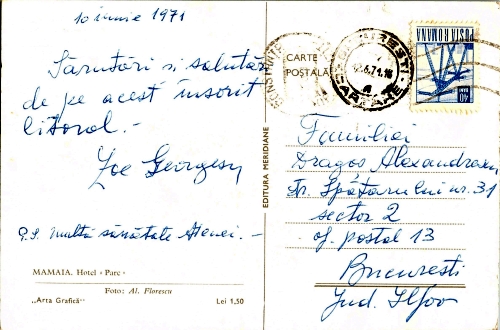 10 iunie 1971
Sărutări și salutări
de pe acest însorit
litoral.-
Zoe Georgescu
P.S. multă sănătate Atenei.-
MAMAIA. Hotel «Parc»
Foto: Al. Florescu
„Arta Grafică“
Lei 1,50
EDITURA MERIDIANE
CARTE
POSTALĂ
POSTA ROMANA
40 BANI
Familiei
Dragoș Alexandrescu
Str. Spătarului nr. 31
sector 2
of. postal 13
București
Jud. Ilfov